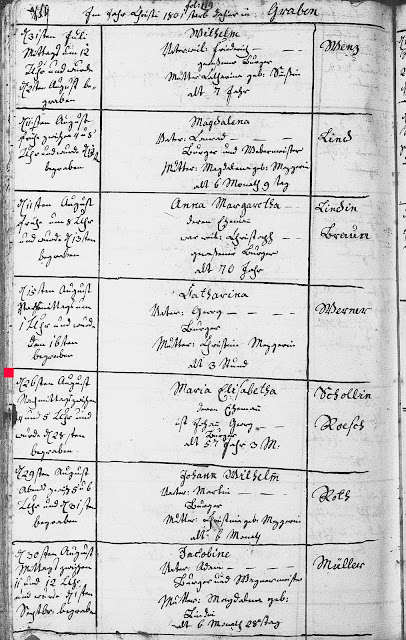 Im Jahr Christi 1801 sterb daher in Graben
d. 31sten Juli
Mittags um 12
Uhr und wurde
d. 2ten August be-
graben
Wilhelm
Vater: weil: Friedrich
gewesener Burger
Mutter Catharina geb:
alt 7 Jahr
Menz
August
Uhr und wurde
begraben
Magdalena
Vater: Conrad
Burger und Webermeister
Mutter: Magdalena geb: Mezgerin
alt 6 Monath 9 tag
Lind
d. 11ten August
frühe um 8 Uhr
und wurde d. 13ten
begraben
Anna Margaretha
deren Ehemann
war weil: Christoph
gewesener Burger
alt 70 Jahr
Lindin
Braun
d. 15ten August
Nachmittags um
1 Uhr und wurde
den 16ten
begraben
Catharina
Vater: Georg
Burger
Mutter: Christina Mezgerin
alt 3 Stund
Werner
d. 26sten August
Nachmittags zwischen
4 und 5 Uhr und
wurde d. 28sten
begraben
Maria Elisabetha
deren Ehemann
ist Johann Georg
Burger
alt 57 Jahr 3 M:
Schollin
Roesch
d. 29sten August
Abend zwisch 5 u 6
Uhr und d. 31sten
begraben
Johann Wilhelm
Vater: Martin
Burger
Mutter: Christina geb: Mezgerin
alt 6 Monath
Roth
d. 30sten August
Mittags zwischen
11 und 12 Uhr
und wurde d. 1sten
Septbr. begraben
Jacobine
Vater: Adam
Burger und Wagnermeister
Mutter: Magdalena geb:
Lindin
alt 6 Monath 28 tag
Müller